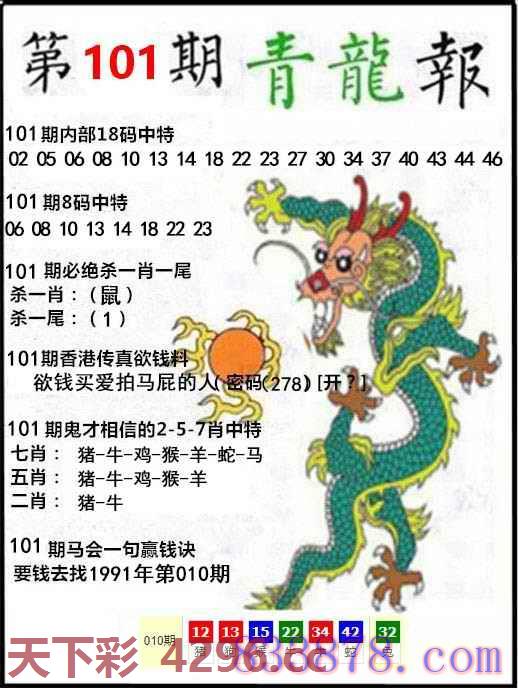 第101期 青龍報
101期内部18码中特
02 05 06 08 10 13 14 18 22 23 27 30 34 37 40 43 44 46
101期8码中特
06 08 10 13 14 18 22 23
101期必绝杀一肖一尾
杀一肖：(鼠)
杀一尾：(1)
101期香港传真欲钱料
欲钱买爱拍马屁的人(密码(278)[开？]
101期鬼才相信的2-5-7肖中特
七肖： 猪-牛-鸡-猴-羊-蛇-马
五肖： 猪-牛-鸡-猴-羊
二肖： 猪-牛
101期马会一句赢钱诀
要钱去找1991年第010期
010期 12 13 15 22 34 42 32
猪 狗 猴 牛 牛 蛇 兔
天下彩 4296.cc